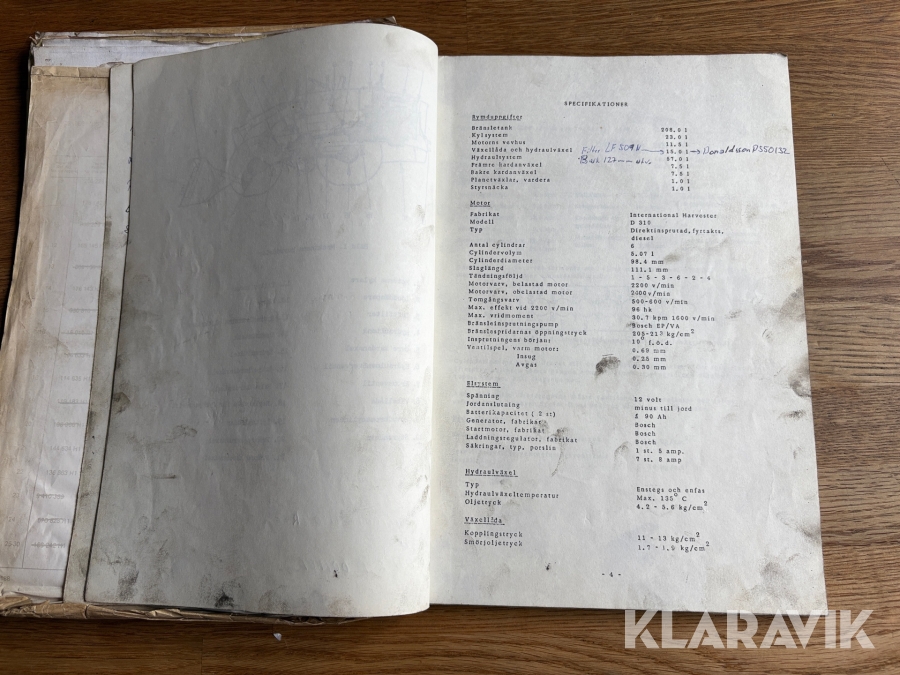 SPECIFIKATIONER
Rymduppgifter
Bränsletank 208.0 l
Kylsystem 23.0 l
Motorns vevhus 11.5 l
Växellåda och hydraulväxel Filter LF 804N → 15.0 l → Donaldsson P550132
Hydraulsystem 127mm 57.0 l
Främre kardanväxel 7.5 l
Bakre kardanväxel 7.5 l
Planetväxlar, vardera 1.0 l
Styrsnäcka 1.0 l
Motor
Fabrikat International Harvester
Modell D 310
Typ Direktinsprutad, fyrtakts,
diesel
Antal cylindrar 6
Cylindervolym 5.07 l
Cylinderdiameter 98.4 mm
Slaglängd 111.1 mm
Tändningsföljd 1 - 5 - 3 - 6 - 2 - 4
Motorvarv, belastad motor 2200 v/min
Motorvarv, obelastad motor 2400 v/min
Tomgångsvarv 500-600 v/min
Max. effekt vid 2200 v/min 96 hk
Max. vridmoment 30.7 kpm 1600 v/min
Bränsleinsprutningspump Bosch EP/VA
Bränslespridarnas öppningstryck 205-213 kg/cm2
Insprutningens början: 10° f.ö.d.
Ventilspel, varm motor: 0.69 mm
Insug 0.25 mm
Avgas 0.30 mm
Elsystem
Spänning 12 volt
Jordanslutning minus till jord
Batterikapacitet ( 2 st) £ 90 Ah
Generator, fabrikat Bosch
Startmotor, fabrikat Bosch
Laddningsregulator, fabrikat Bosch
Säkringar, typ, porslin 1 st. 5 amp.
7 st. 8 amp
Hydraulväxel
Typ Enstegs och enfas
Hydraulväxeltemperatur Max. 135° C
Oljetryck 4.2 - 5.6 kg/cm2
Växellåda
Kopplingstryck 11 - 13 kg/cm2
Smörjoljetryck 1.7 - 1.9 kg/cm2
- 4 -
KLARAVIK